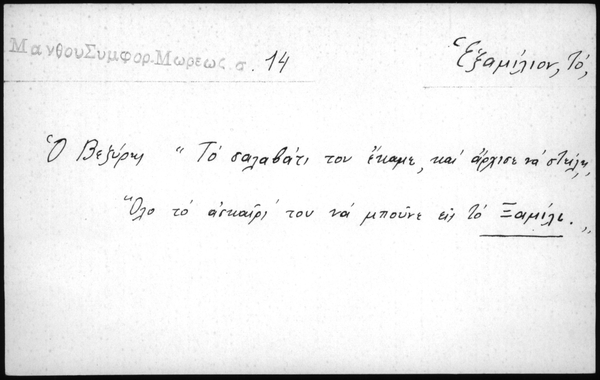 Μανθου Συμφορ. Μωρεως σ. 14
Ἑξαμίλιον, τό,
Ὁ Βεζύρης "Τό σαλαβάτι του ἔκαμε, καί ἄρχισε νά στείλη,,
Ὅλο τό ἀσκαῖρί του νά μποῦνε εἰς τό Ξαμίλι.,,